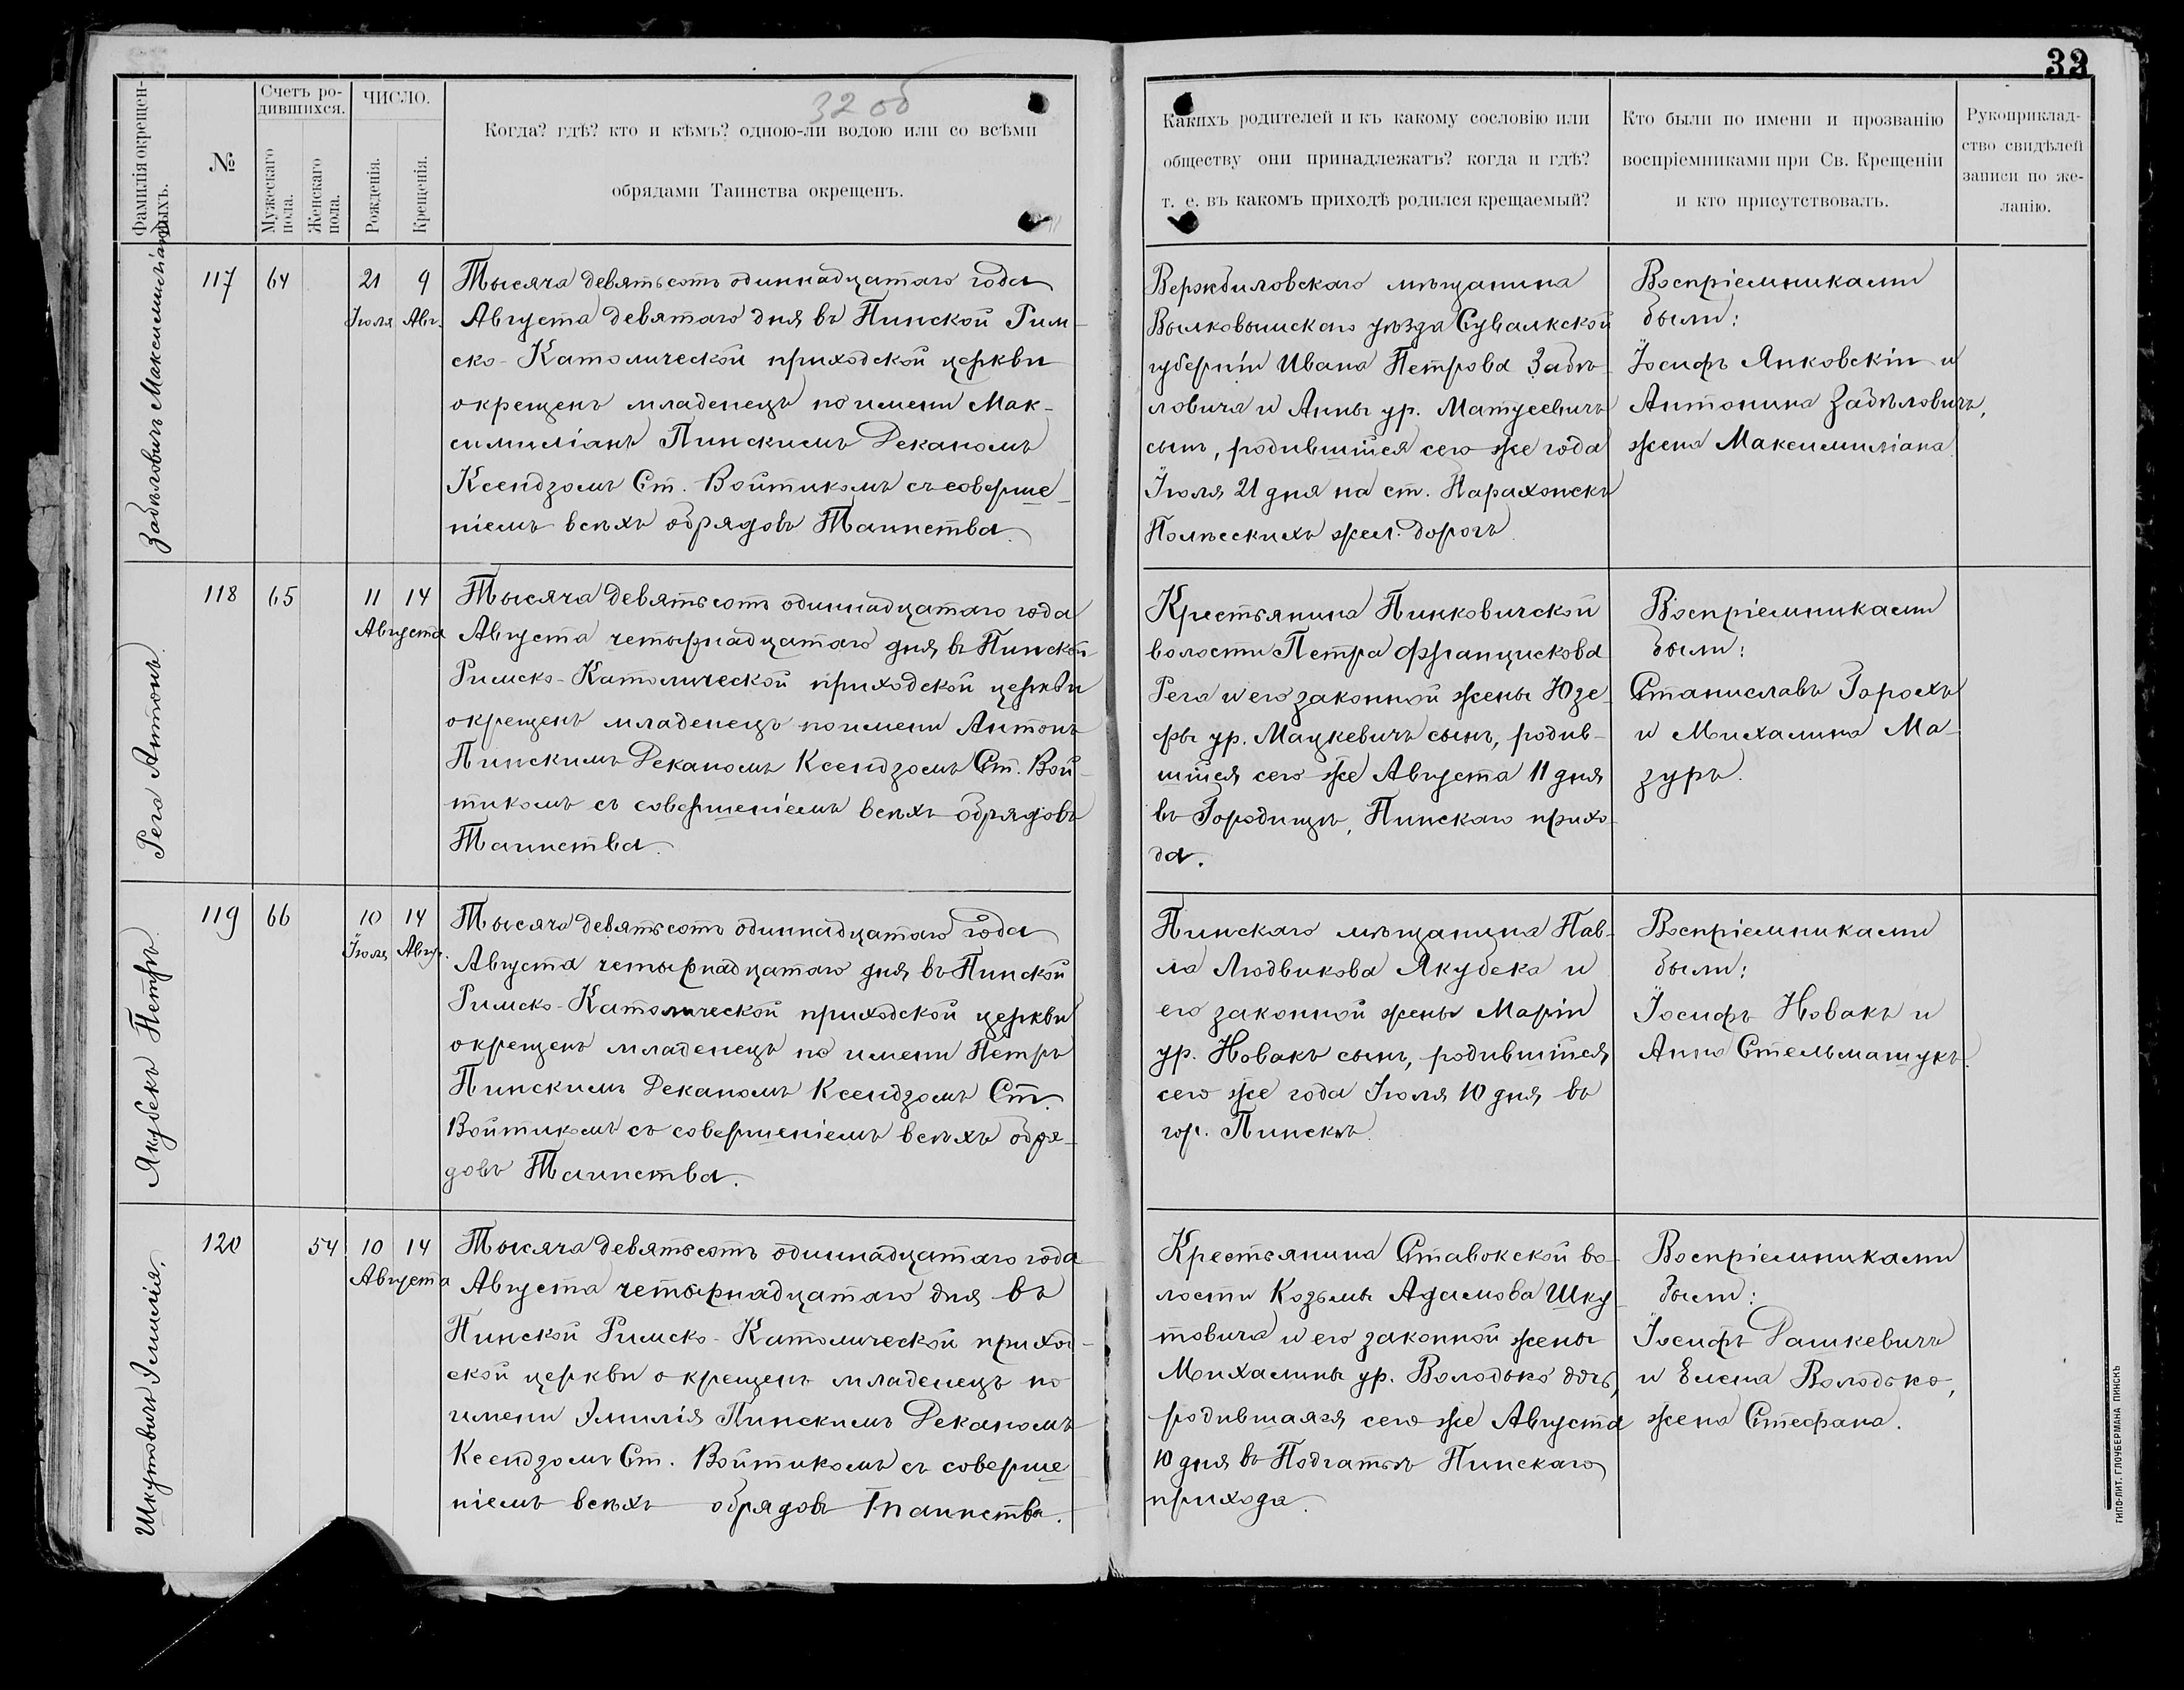 33
32 об
Фамилія окрещен-
ныхъ.
№
Счетъ ро-
дившихся.
Мужескаго
пола.
Женскаго
пола.
ЧИСЛО.
Рожденія.
Крещенія.
Когда? гдѣ? кто и кѣмъ? одною-ли водою или со всѣми
обрядами Таинства окрещенъ.
Какихъ родителей и къ какому сословію или
обществу они принадлежатъ? когда и гдѣ?
т. е. въ какомъ приходѣ родился крещаемый?
Кто были по имени и прозванію
воспріемниками при Св. Крещеніи
и кто присутствовалъ.
Рукоприклад-
ство свидѣлей
записи по же-
ланію.
Забѣловичъ Максимиліанъ
117 64 21 9
Іюля Авг.
Тысяча девятьсотъ одиннадцатаго года
Августа девятаго дня въ Пинской Рим-
ско-Католической приходской церкви
окрещенъ младенецъ по имени Мак-
симиліанъ Пинскимъ Деканомъ
Ксендзомъ Ст. Войтикомъ съ соверше-
ніемъ всѣхъ обрядовъ Таинства.
Вержбиловскаго мѣщанина
Вылковышскаго уѣзда Сувалкской
губерніи Ивана Петрова Забѣ-
ловича и Анны ур. Матусевичъ
сынъ, родившійся сего же года
Іюля 21 дня на ст. Парахонскъ
Полѣсскихъ жел. дорогъ
Воспріемниками
были:
Іосифъ Янковскій и
Антонина Забѣловичъ,
жена Максимиліана.
Рега Антонъ.
118 65 11 14
Августа
Тысяча девятьсотъ одиннадцатаго года
Августа четырнадцатаго дня въ Пинской
Римско-Католической приходской церкви
окрещенъ младенецъ по имени Антонъ
Пинскимъ Деканомъ Ксендзомъ Ст. Вой-
тикомъ съ совершеніемъ всѣхъ обрядовъ
Таинства.
Крестьянина Пинковичской
волости Петра Францискова
Рега и его законной жены Юзе-
фы ур. Мацкевичъ сынъ, родив-
шійся сего же Августа 11 дня
въ Городищѣ, Пинскаго прихо-
да.
Воспріемниками
были:
Станиславъ Горохъ
и Михалина Ма-
зуръ.
Якубекъ Петръ.
119 66 10 14
Іюля Авгус.
Тысяча девятьсотъ одиннадцатаго года
Августа четырнадцатаго дня въ Пинской
Римско-Католической приходской церкви
окрещенъ младенецъ по имени Петръ
Пинскимъ Деканомъ Ксендзомъ Ст.
Войтикомъ съ совершеніемъ всѣхъ обря-
довъ Таинства.
Пинскаго мѣщанина Пав-
ла Людвикова Якубека и
его законной жены Маріи
ур. Новакъ сынъ, родившійся
сего же года Іюля 10 дня, въ
гор. Пинскѣ.
Воспріемниками
были:
Іосифъ Новакъ и
Анна Стельмашукъ.
Шкутовичъ Эмилія.
120 54 10 14
Августа
Тысяча девятьсотъ одиннадцатаго года
Августа четырнадцатаго дня въ
Пинской Римско-Католической приход-
ской церкви окрещенъ младенецъ по
имени Эмилія Пинскимъ Деканомъ
Ксендзомъ Ст. Войтикомъ съ соверше
ніемъ всѣхъ обрядовъ Таинства.
Крестьянина Ставокской во-
лости Козьмы Адамова Шку-
товича и его законной жены
Михалины ур. Володько дочь,
родившаяся сего же Августа
10 дня въ Подгатьѣ Пинскаго
прихода.
Воспріемниками
были:
Іосифъ Рашкевичъ
и Елена Володько,
жена Стефана.
ТИПО-ЛИТ. ГЛОУБЕРМАНА ПИНСКЪ